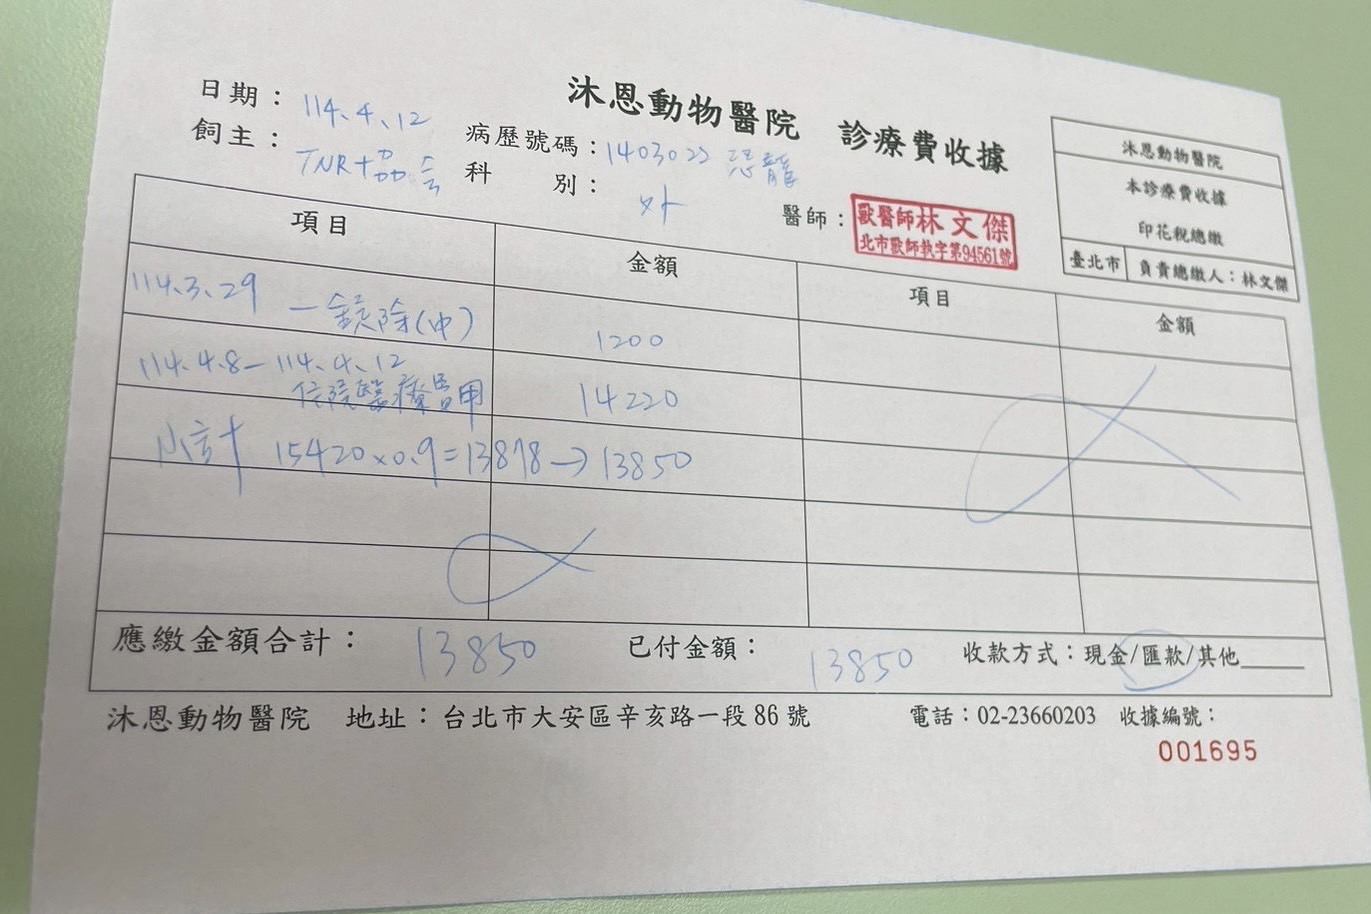 沐恩動物醫院 診療費收據
日期：114、4、12
飼主：TNR十品会
病歷號碼：1403022 恐龍
科 別：外
醫師：獸醫師林文傑
北市獸師執字第94561號
沐恩動物醫院
本診療費收據
印花稅總繳
臺北市 負責總繳人：林文傑
項目 金額 項目 金額
114、3、29 一鏡除(中) 1200
114、4、8－114、4、12
住院醫療費用 14220
小計 15420×0.9=13878→13850
應繳金額合計：13850 已付金額：13850 收款方式：現金/匯款/其他
沐恩動物醫院 地址：台北市大安區辛亥路一段86號 電話：02-23660203 收據編號：
001695